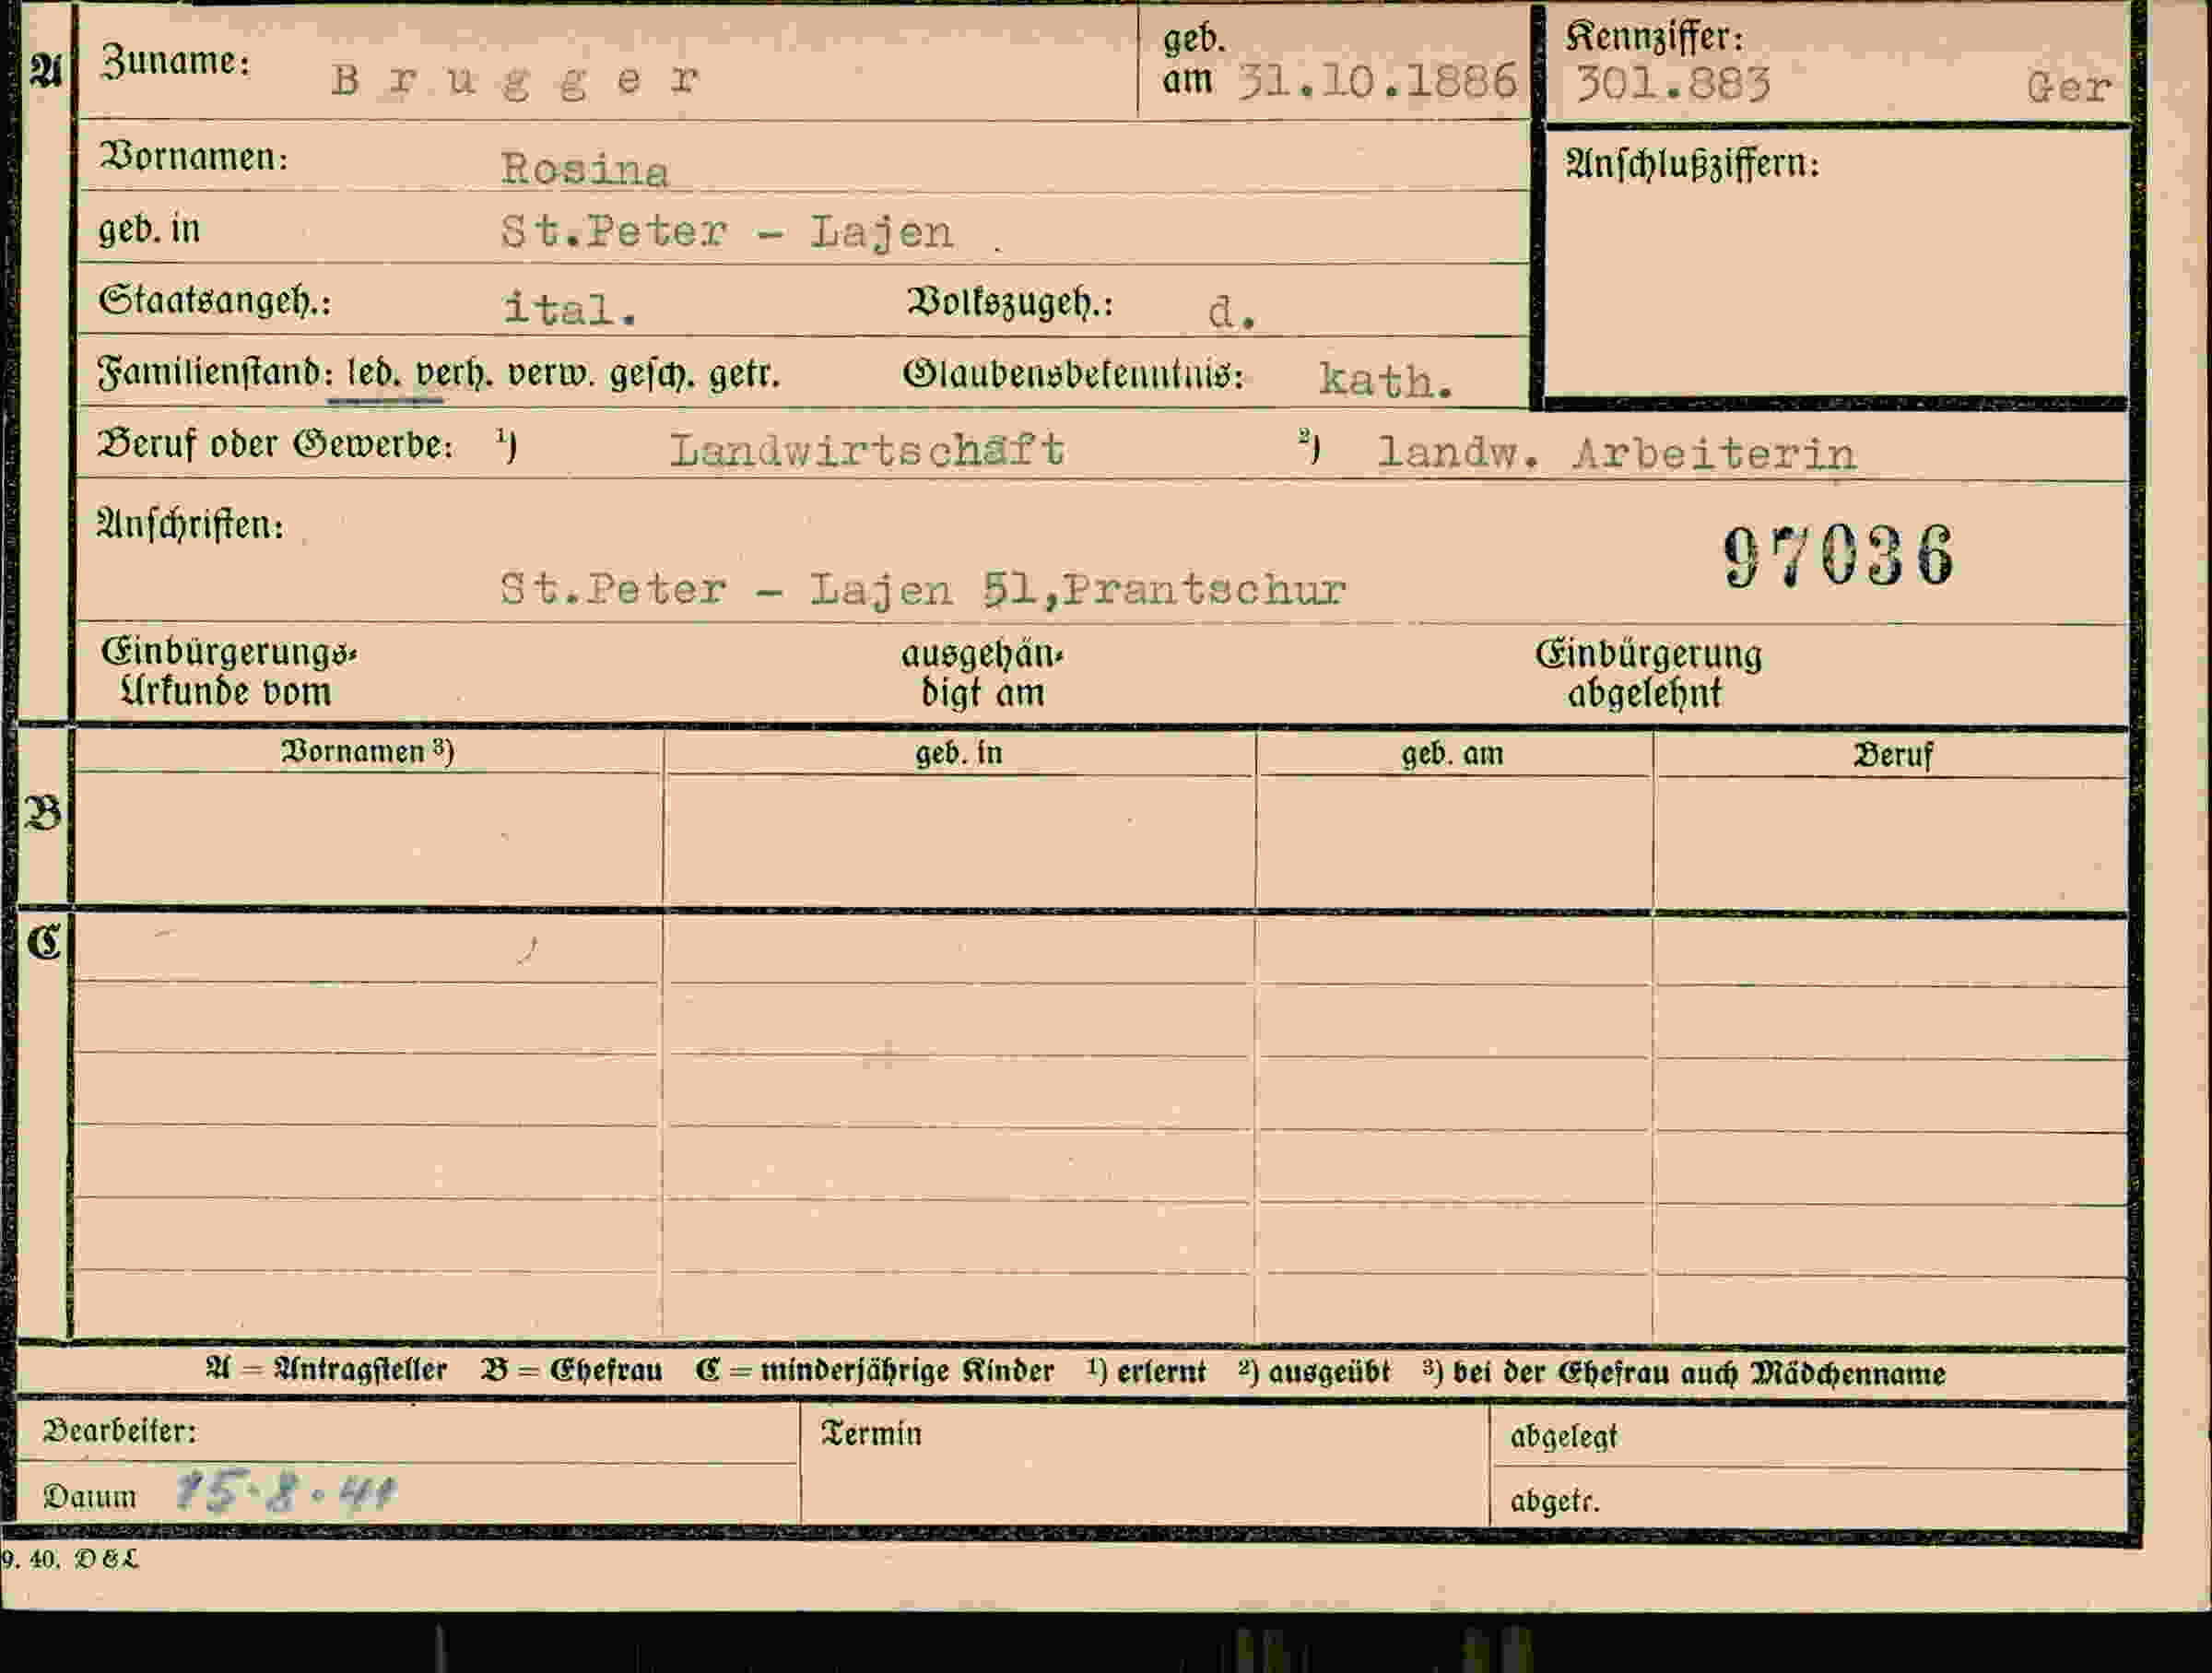 A Zuname: Brugger geb. am 31.10.1886 Kennziffer: 301.883 Ger
Vornamen: Rosina Anschlußziffern:
geb. in St.Peter - Lajen
Staatsangeh.: ital. Volkszugeh.: d.
Familienstand: led. verh. verw. gesch. getr. Glaubensbekenntnis: kath.
Beruf oder Gewerbe: ¹) Landwirtschaft ²) landw. Arbeiterin
Anschriften:
97036
St.Peter - Lajen 51,Prantschur
Einbürgerungs- Urkunde vom ausgehän- digt am Einbürgerung abgelehnt
Vornamen ³) geb. in geb. am Beruf
B
C
A = Antragsteller B = Ehefrau C = minderjährige Kinder ¹) erlernt ²) ausgeübt ³) bei der Ehefrau auch Mädchenname
Bearbeiter: Termin abgelegt
Datum 15.8.41 abgetr.
9. 40. D & L